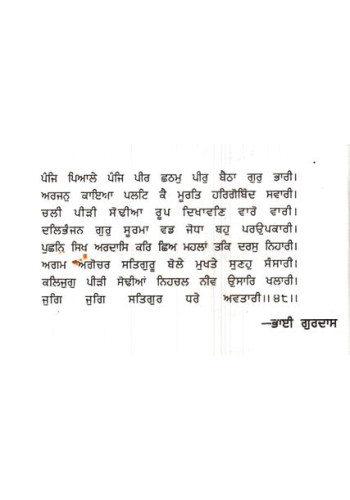 ਪੰਜਿ ਪਿਆਲੇ ਪੰਜਿ ਪੀਰ ਛਠਮੁ ਪੀਰੁ ਬੈਠਾ ਗੁਰੁ ਭਾਰੀ।
ਅਰਜਨੁ ਕਾਇਆ ਪਲਟਿ ਕੈ ਮੂਰਤਿ ਹਰਿਗੋਬਿੰਦ ਸਵਾਰੀ।
ਚਲੀ ਪੀੜੀ ਸੋਢੀਆ ਰੂਪ ਦਿਖਾਵਣਿ ਵਾਰੋ ਵਾਰੀ।
ਦਲਿਭੰਜਨ ਗੁਰੁ ਸੂਰਮਾ ਵਡ ਜੋਧਾ ਬਹੁ ਪਰਉਪਕਾਰੀ।
ਪੁਛਨਿ ਸਿਖ ਅਰਦਾਸਿ ਕਰਿ ਛਿਅ ਮਹਲਾਂ ਤਕਿ ਦਰਸੁ ਨਿਹਾਰੀ।
ਅਗਮ ਅਗੋਚਰ ਸਤਿਗੁਰੂ ਬੋਲੇ ਮੁਖਤੇ ਸੁਣਹੁ ਸੰਸਾਰੀ।
ਕਲਿਜੁਗੁ ਪੀੜੀ ਸੋਢੀਆਂ ਨਿਹਚਲ ਨੀਂਵ ਉਸਾਰਿ ਖਲਾਰੀ।
ਜੁਗਿ ਜੁਗਿ ਸਤਿਗੁਰ ਧਰੇ ਅਵਤਾਰੀ॥੪੮॥
—ਭਾਈ ਗੁਰਦਾਸ